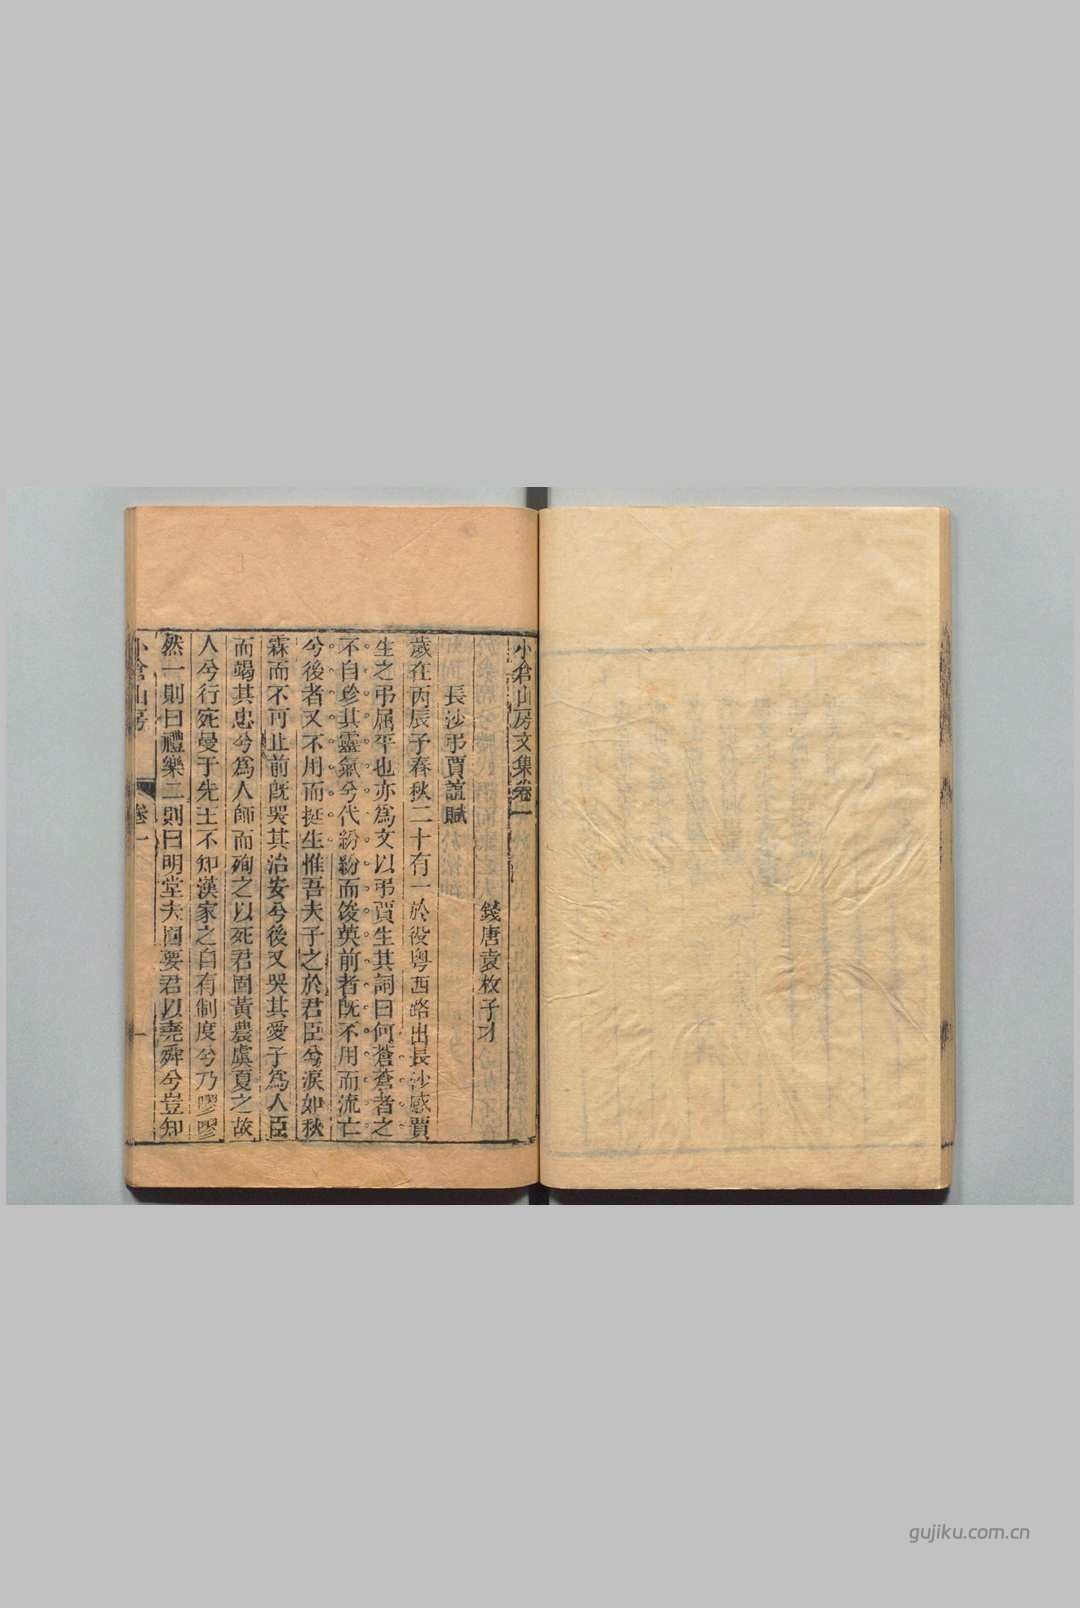 小倉山房文集卷一
錢唐袁枚子才
長沙弔賈誼賦
歲在丙辰予春秋二十有一於役粵西路出長沙感賈
生之弔屈平也亦爲文以弔賈生其詞曰何蒼蒼者之
不自珍其靈氣兮代紛紛而俊英前者既不用而流亡
兮後者又不用而挺生惟吾夫子之於君臣兮淚如秋
霖而不可止前既哭其治安兮後又哭其愛子爲人臣
而竭其忠兮爲人師而殉之以死君固黃農虞夏之故
人兮行宛曼于先王不知漢家之自有制度兮乃嘐嘐
然一則曰禮樂二則曰明堂夫固要君以堯舜兮豈知
小倉山房
卷一
一
gujiku.com.cn